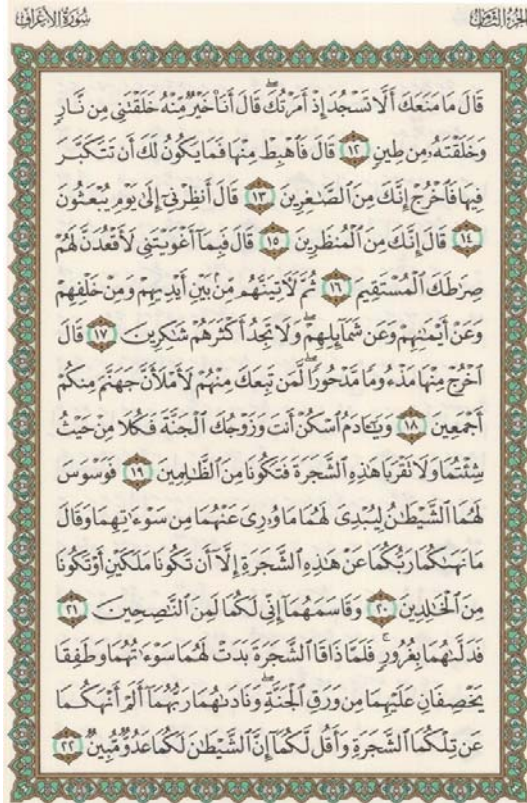 الجزء الثامن
سورة الأعراف
قَالَ مَا مَنَعَكَ أَلَّا تَسْجُدَ إِذْ أَمَرْتُكَ ۖ قَالَ أَنَا۠ خَيْرٌ مِّنْهُ خَلَقْتَنِى مِن نَّارٍ
وَخَلَقْتَهُۥ مِن طِينٍ ١٢ قَالَ فَٱهْبِطْ مِنْهَا فَمَا يَكُونُ لَكَ أَن تَتَكَبَّرَ
فِيهَا فَٱخْرُجْ إِنَّكَ مِنَ ٱلصَّٰغِرِينَ ١٣ قَالَ أَنظِرْنِىٓ إِلَىٰ يَوْمِ يُبْعَثُونَ
١٤ قَالَ إِنَّكَ مِنَ ٱلْمُنظَرِينَ ١٥ قَالَ فَبِمَآ أَغْوَيْتَنِى لَأَقْعُدَنَّ لَهُمْ
صِرَٰطَكَ ٱلْمُسْتَقِيمَ ١٦ ثُمَّ لَأٓتِيَنَّهُم مِّنۢ بَيْنِ أَيْدِيهِمْ وَمِنْ خَلْفِهِمْ
وَعَنْ أَيْمَٰنِهِمْ وَعَن شَمَآئِلِهِمْ ۖ وَلَا تَجِدُ أَكْثَرَهُمْ شَٰكِرِينَ ١٧ قَالَ
ٱخْرُجْ مِنْهَا مَذْءُومًا مَّدْحُورًا ۖ لَّمَن تَبِعَكَ مِنْهُمْ لَأَمْلَأَنَّ جَهَنَّمَ مِنكُمْ
أَجْمَعِينَ ١٨ وَيَٰٓـَٔادَمُ ٱسْكُنْ أَنتَ وَزَوْجُكَ ٱلْجَنَّةَ فَكُلَا مِنْ حَيْثُ
شِئْتُمَا وَلَا تَقْرَبَا هَٰذِهِ ٱلشَّجَرَةَ فَتَكُونَا مِنَ ٱلظَّٰلِمِينَ ١٩ فَوَسْوَسَ
لَهُمَا ٱلشَّيْطَٰنُ لِيُبْدِىَ لَهُمَا مَا وُۥرِىَ عَنْهُمَا مِن سَوْءَٰتِهِمَا وَقَالَ
مَا نَهَىٰكُمَا رَبُّكُمَا عَنْ هَٰذِهِ ٱلشَّجَرَةِ إِلَّآ أَن تَكُونَا مَلَكَيْنِ أَوْ تَكُونَا
مِنَ ٱلْخَٰلِدِينَ ٢٠ وَقَاسَمَهُمَآ إِنِّى لَكُمَا لَمِنَ ٱلنَّٰصِحِينَ ٢١
فَدَلَّىٰهُمَا بِغُرُورٍ ۚ فَلَمَّا ذَاقَا ٱلشَّجَرَةَ بَدَتْ لَهُمَا سَوْءَٰتُهُمَا وَطَفِقَا
يَخْصِفَانِ عَلَيْهِمَا مِن وَرَقِ ٱلْجَنَّةِ ۖ وَنَادَىٰهُمَا رَبُّهُمَآ أَلَمْ أَنْهَكُمَا
عَن تِلْكُمَا ٱلشَّجَرَةِ وَأَقُل لَّكُمَآ إِنَّ ٱلشَّيْطَٰنَ لَكُمَا عَدُوٌّ مُّبِينٌ ٢٢